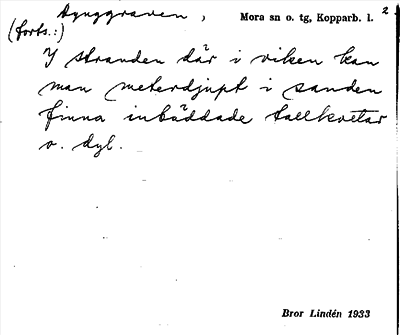 Dynggraven, Mora sn o. tg, Kopparb. l. 2
(forts.:)
I stranden där i viken kan
man meterdjupt i sanden
finna inbäddade tallkvistar
o. dyl.
Bror Lindén 1933